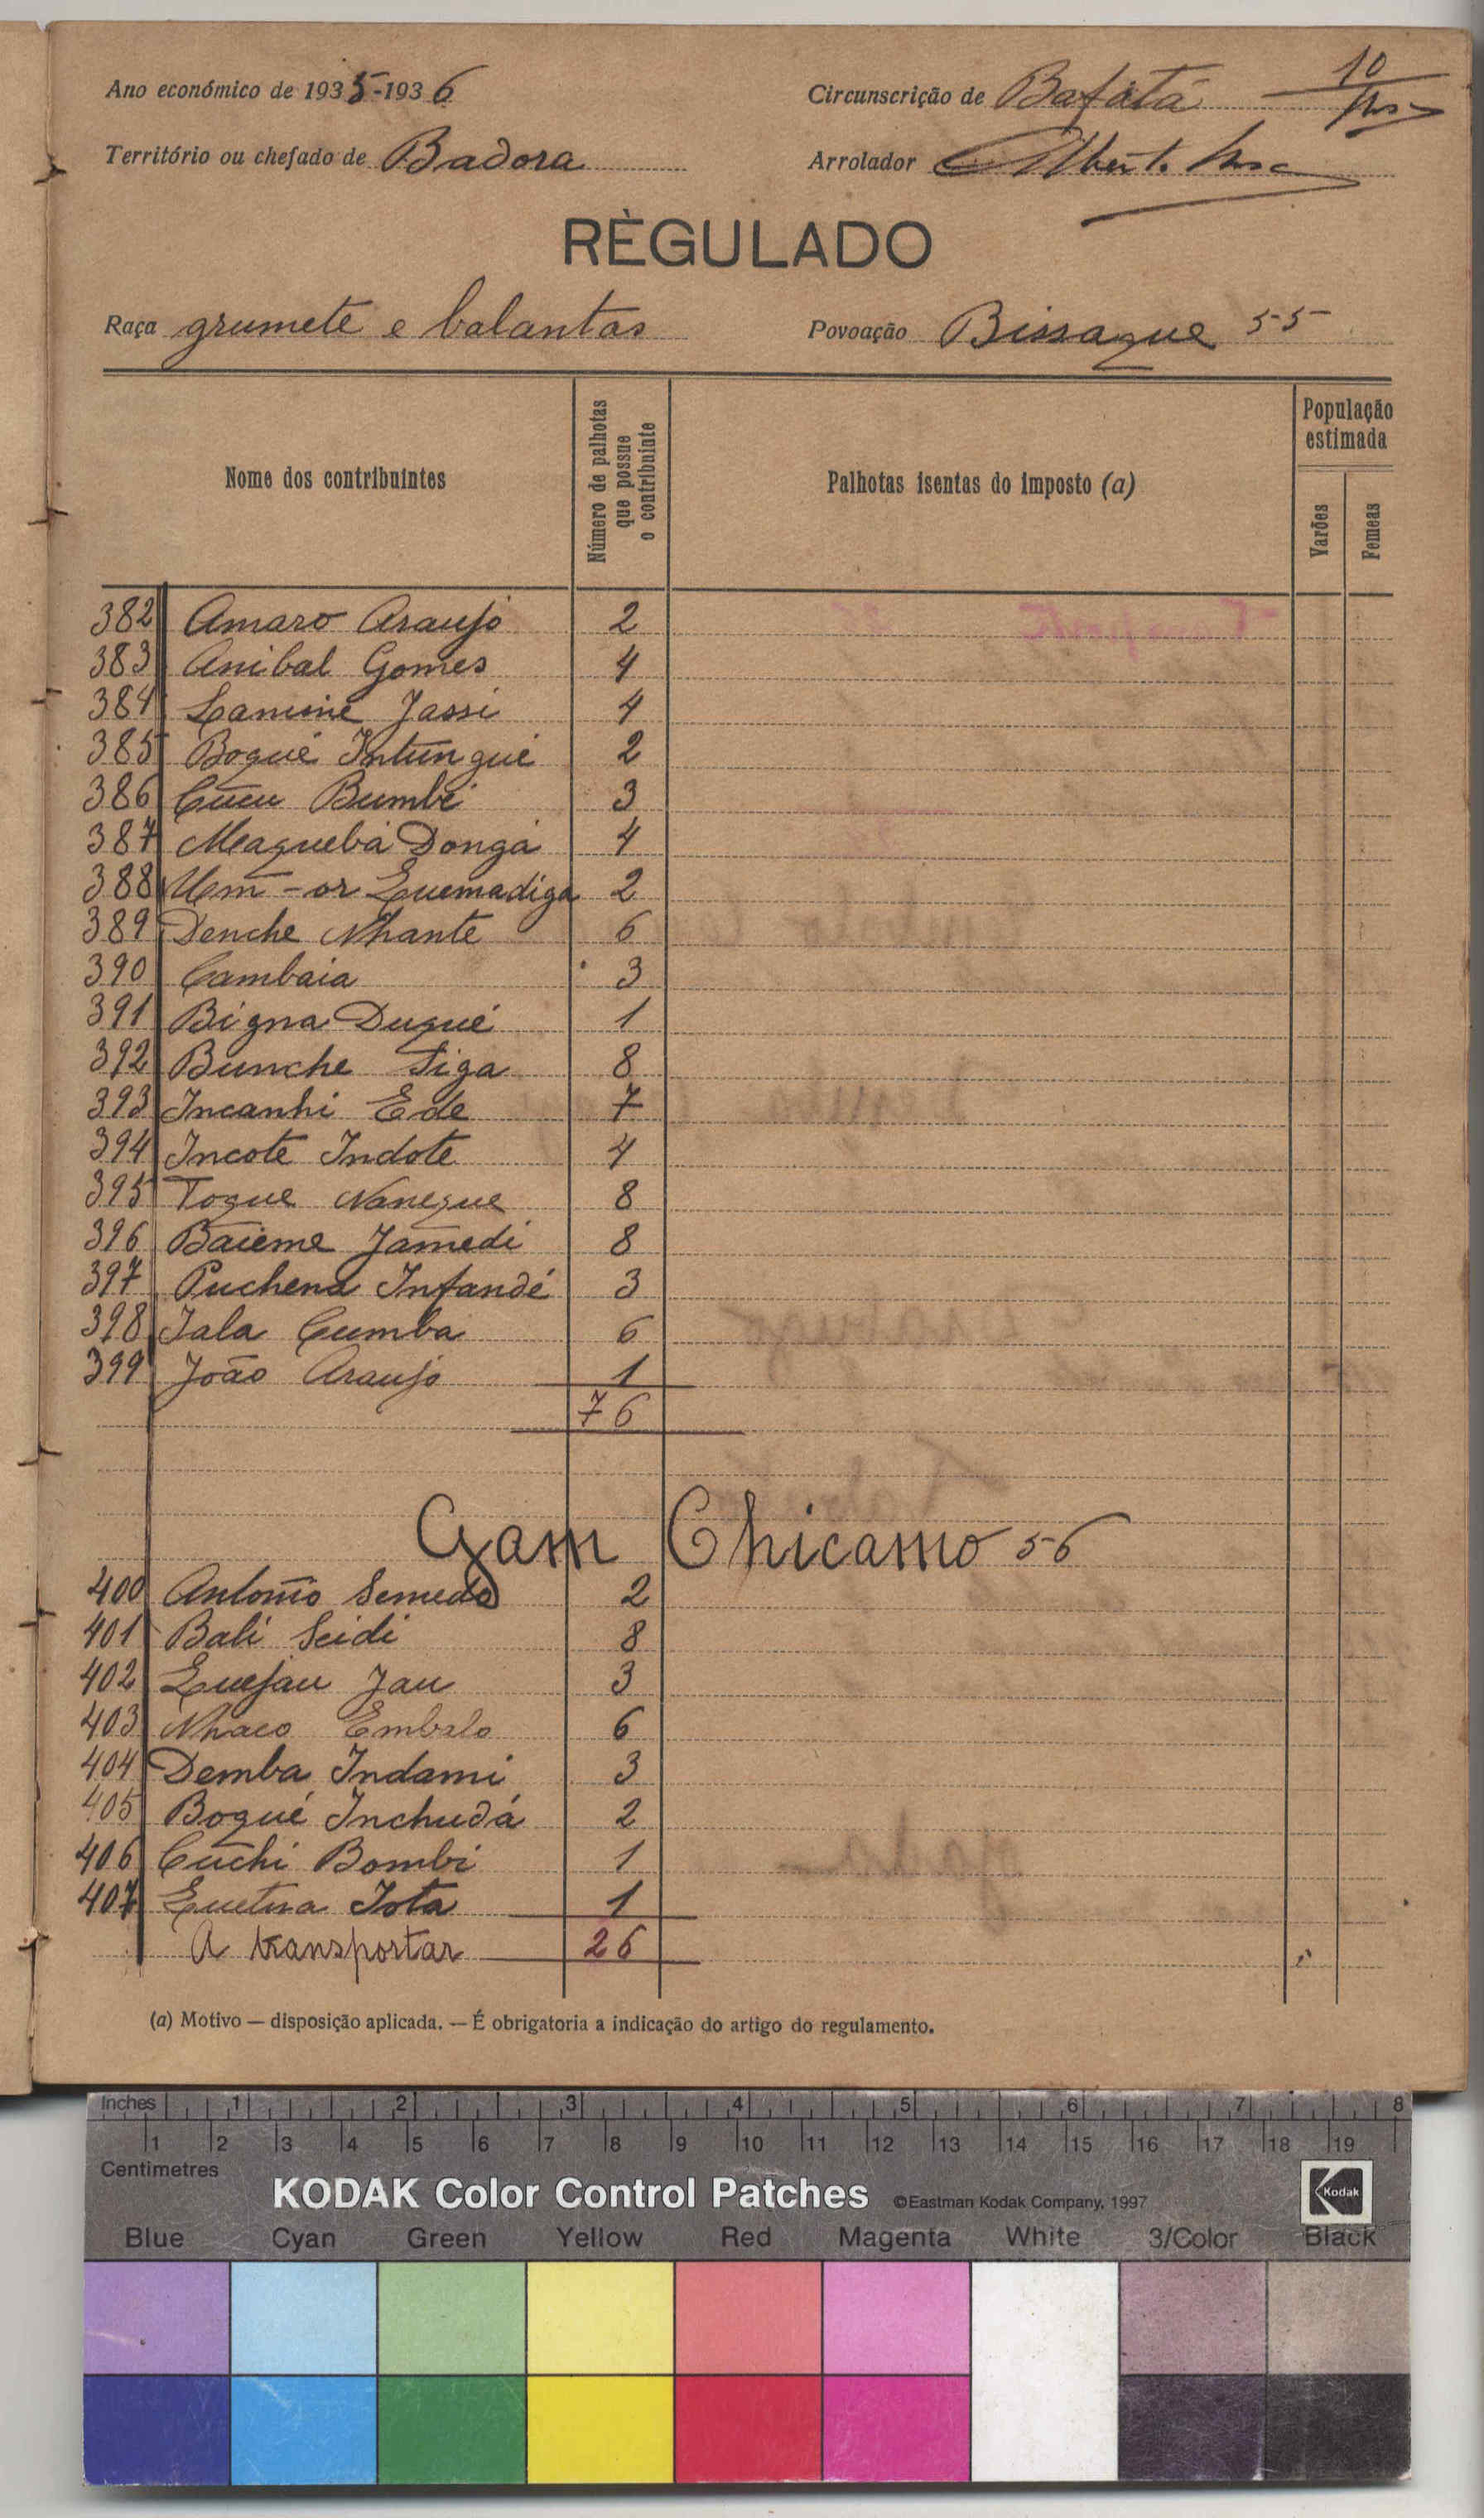 Ano económico de 1935-1936
Circunscrição de Bafatá
10
Território ou chefado de Badora
Arrolador
RÈGULADO
Raça grumete e balantas
Povoação Bissaque 55
Nome dos contribuintes
Número de palhotas que possue o contribuinte
Palhotas isentas do imposto (a)
População estimada
Varões
Femeas
382 Amaro Araujo 2
383 Anibal Gomes 4
384 Lamine Jassi 4
385 Boqué Intungué 2
386 Cucu Bumbi 3
387 Maquebá Dongá 4
388 Um-or Quemadiga 2
389 Denche Nhante 6
390 Cambaia 3
391 Bigna Duqué 1
392 Bunche Siga 8
393 Incanhi Ede 7
394 Incote Indote 4
395 Toque Naneque 8
396 Baieme Jamedi 8
397 Puchena Infandé 3
398 Jala Cumba 6
399 João Araujo 1
76
Gam Chicamo 56
400 Antonio Semedo 2
401 Bali Seidi 8
402 Quejau Jau 3
403 Nhaco Embalo 6
404 Demba Indami 3
405 Boqué Inchudá 2
406 Cuchi Bombi 1
407 Iota 1
A transportar 26
(a) Motivo — disposição aplicada. — É obrigatoria a indicação do artigo do regulamento.
Inches 1 2 3 4 5 6 7 8
1 2 3 4 5 6 7 8 9 10 11 12 13 14 15 16 17 18 19
Centimetres
KODAK Color Control Patches ©Eastman Kodak Company, 1997 Kodak
Blue Cyan Green Yellow Red Magenta White 3/Color Black